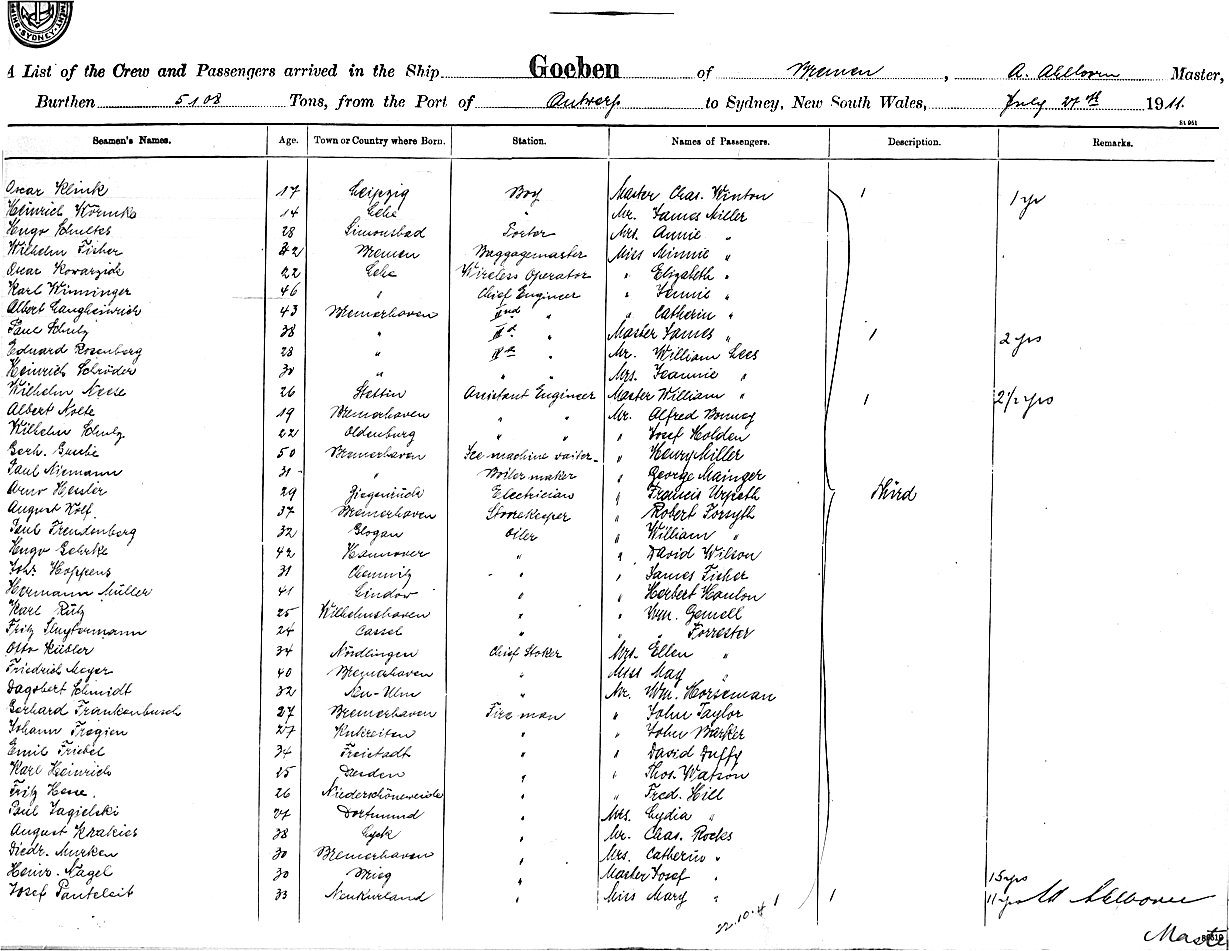 SYDNEY
A List of the Crew and Passengers arrived in the Ship Goeben of Bremen, A. Ahlborn Master,
Burthen 5108 Tons, from the Port of Antwerp to Sydney, New South Wales, July 27th 1911.
St 961
Seamen's Names. Age. Town or Country where Born. Station. Names of Passengers. Description. Remarks.
Oscar Klink 17 Leipzig Boy Master Chas. Winton 1 1 yr
Heinrich 14 Lehe " Mr. James Miller
Hugo Schultes 28 Simonsbad Porter Mrs. Annie "
Wilhelm Fisher 32 Bremen Baggagemaster Miss Minnie "
Oscar Kowarzick 22 Lehe Wireless Operator " Elizabeth "
Karl Winninger 46 " Chief Engineer " Jennie "
Albert Langheinrich 43 Bremerhaven IInd " " Catherin "
Paul Schulz 38 " " Master James " 1 2 yrs
Eduard Rosenberg 28 " " Mr. William Lees
Heinrich Schröder 30 " " " Mrs. Jeannie "
Wilhelm Nolte 26 Stettin Assistant Engineer Master William " 1 2 1/2 yrs
Albert Nolte 19 Bremerhaven " " Mr. Alfred Bonney
Wilhelm Schulz 22 Oldenburg " " " Josef Holden
Gerh. 50 Bremerhaven Ice machine " Henry Miller
Paul Niemann 31 " Boilermaker " George Mainger
Arno Henler 29 Ziegenrück Electrician " Francis
August Wolf. 37 Bremerhaven Storekeeper " Robert Forsyth Third
Paul Freudenberg 32 Glogau Oiler " William "
Hugo Gehrke 42 Hannover " " David Wilson
Johs Hoppens 31 Chemnitz " " James Fisher
Hermann Müller 41 Lindow " " Herbert Hanlon
Karl Rütz 25 Wilhelmshaven " " Wm. Gemell
Fritz Sluytermann 24 Cassel " " Forrester
Otto Kübler 34 Nördlingen Chief Stoker Mrs. Ellen "
Friedrich Meyer 40 Bremerhaven " Miss May "
Dagobert Schmidt 32 Neu-Ulm " Mr. Wm. Horseman
Gerhard Frankenbusch 27 Bremerhaven Fireman " John Taylor
Johann Trogien 27 " " John Barker
Emil Friebel 34 Freistadt " " David Duffy
Karl Heinrich 25 Dresden " " Thos. Watson
Fritz Hesse. 26 Niederschöneweide " " Fred. Hill
Paul Jagielski 27 Dortmund " Mrs. Lydia "
August Krakies 38 Lyck " Mr. Chas. Rocks
Diedr. Murken 30 Bremerhaven " Mrs. Catherin "
Heinr. Nagel 30 Brieg " Master Josef " 15 yrs
Josef Panteleit 33 Neukurland " Miss Mary " 1 11 yrs A Ahlborn
22.10.4 1
Master